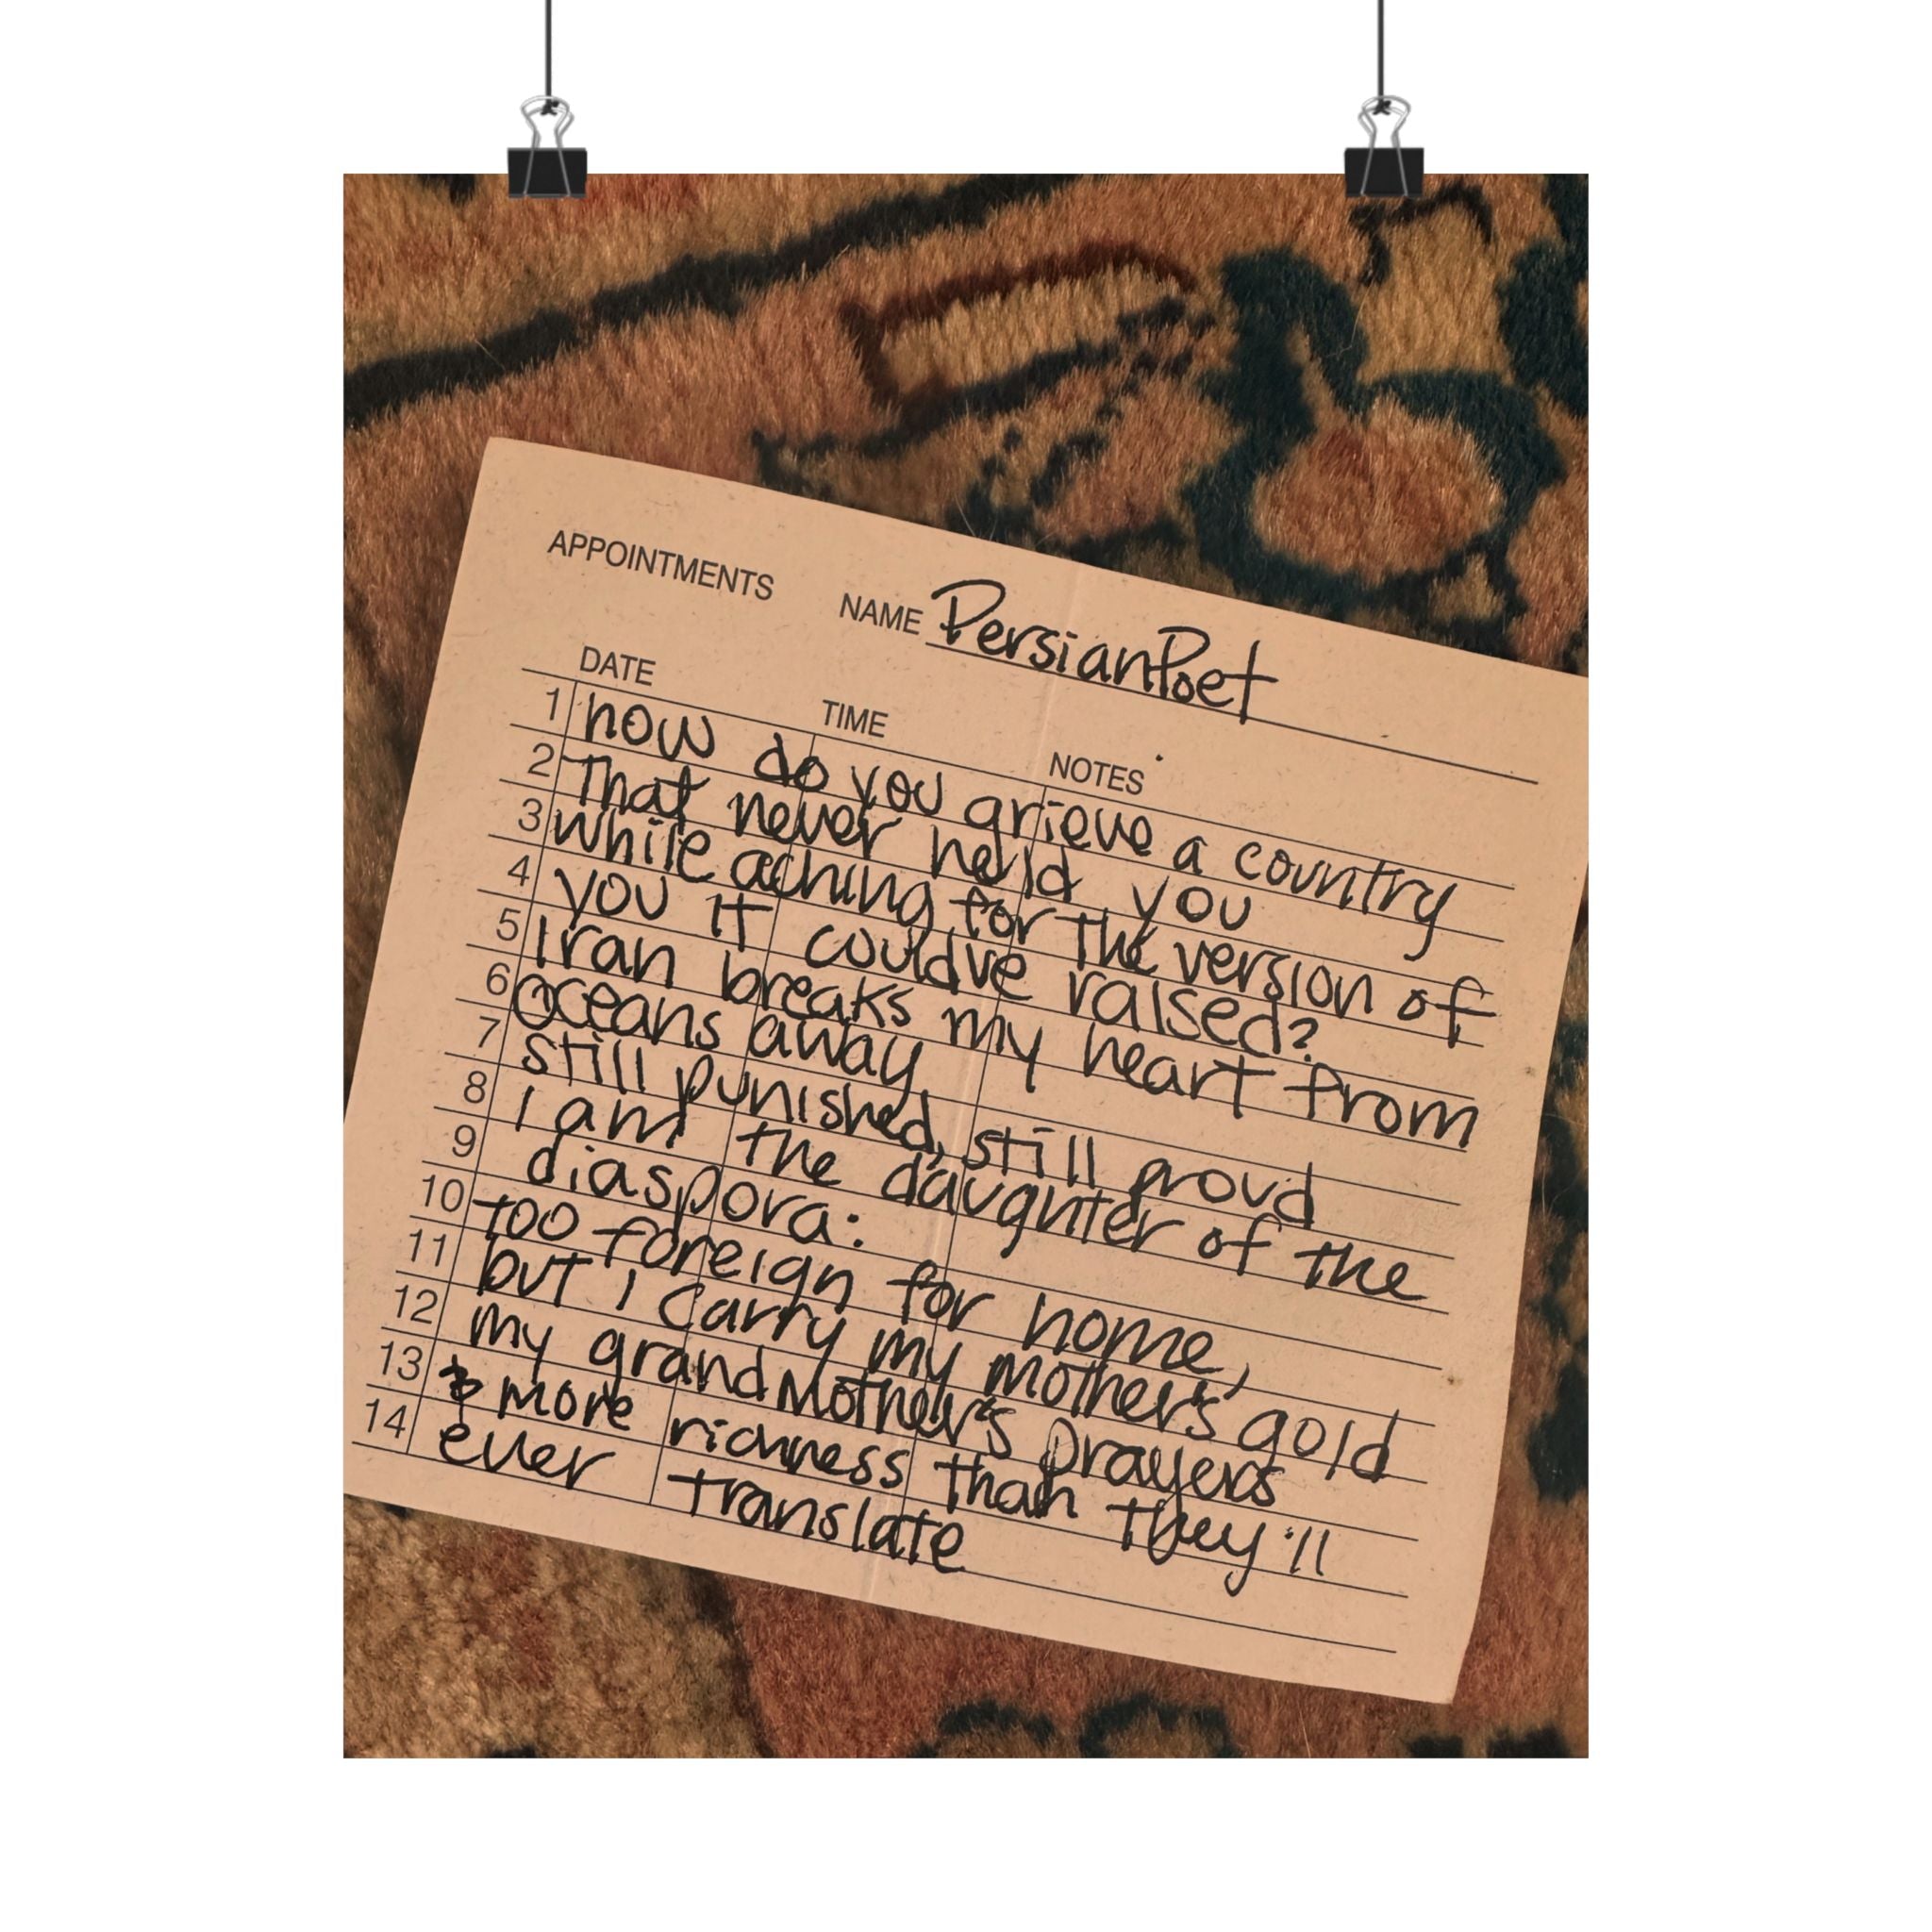 APPOINTMENTS NAME PersianPoet
DATE TIME NOTES
1 how do you grieve a country
2 That never held you
3 while aching for the version of
4 you it could've raised?
5 Iran breaks my heart from
6 oceans away
7 still punished, still proud
8 I am the daughter of the
9 diaspora:
10 too foreign for home,
11 but I carry my mother's gold
12 my grandMother's prayers
13 & more richness than they'll
14 ever translate